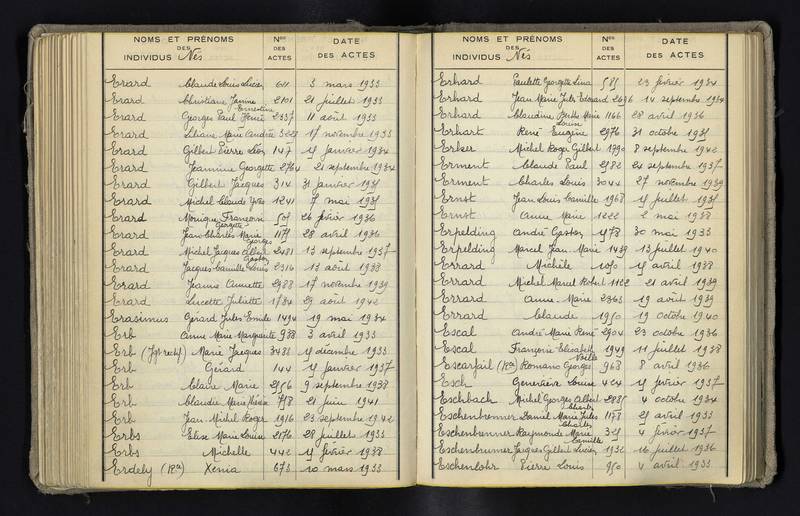 NOMS ET PRÉNOMS
DES
INDIVIDUS Nés
Nos
DES
ACTES
DATE
DES ACTES
Erard Claude Louis Lucien 611 3 mars 1933
Erard Christiane Jeanne Ernestine 2101 21 juillet 1933
Erard Georges Paul Henri 2337 11 août 1933
Erard Liliane Marie Andrée 17 novembre 1933
Erard Gilbert Pierre Léon 147 janvier 1934
Erard Jeannine Georgette 2764 21 septembre 1934
Erard Gilbert Jacques 314 31 janvier 1935
Erard Michel Claude Yves 1241 7 mai 1935
Erard Monique Françoise Georgette 505 26 février 1936
Erard Jean Charles Marie Georges 28 avril 1936
Erard Michel Jacques Albert Gaston 2481 13 septembre 1937
Erard Jacques Camille Louis 2316 13 août 1938
Erard Jeanne Annette 2988 17 novembre 1939
Erard Lucette Juliette 1784 29 août 1942
Erasimus Gérard Jules Emile 1494 19 mai 1934
Erb Anne Marie Marguerite 988 3 avril 1933
Erb Marie Jacques 3486 décembre 1933
Erb Gérard 144 janvier 1937
Erb Claire Marie 2456 9 septembre 1938
Erb Claudie Marie 21 juin 1941
Erb Jean Michel Roger 1916 23 septembre 1942
Erbs Elise Marie Louise 2176 28 juillet 1933
Erbs Michelle 442 février 1938
Erdely (Ka) Xenia 673 10 mars 1933
NOMS ET PRÉNOMS
DES
INDIVIDUS Nés
Nos
DES
ACTES
DATE
DES ACTES
Erhard Paulette Georgette Lina 585 23 février 1934
Erhard Jean Marie Jules Edouard 2696 14 septembre 1934
Erhard Claudine Berthe Marie Louise 1166 28 avril 1936
Erhart René Eugène 2976 31 octobre 1935
Erker Michel Roger Gilbert 1790 8 septembre 1942
Erment Claude Paul 2582 24 septembre 1937
Erment Charles Louis 3044 27 novembre 1939
Ernst Jean Louis Camille 1968 juillet 1935
Ernst Anne Marie 1222 2 mai 1938
Erpelding André Gaston 30 mai 1933
Erpelding Marcel Jean Marie 1439 13 juillet 1940
Errard Michèle 1050 avril 1938
Errard Michel Marcel Robert 1122 21 avril 1939
Errard Anne Marie 2363 19 août 1939
Errard Claude 1950 19 octobre 1940
Escal André Marie René 2904 23 octobre 1936
Escal Françoise Elisabeth Noëlle 1949 11 juillet 1938
Escarfail (Ka) Romano Georges 968 8 avril 1936
Esch Geneviève Louise 424 février 1937
Eschbach Michel Georges Albert Charles 2885 4 octobre 1934
Eschenbrenner Daniel Marie Jules Charles 1178 21 avril 1933
Eschenbrenner Raymonde Marie Camille 325 4 février 1937
Eschenbrenner Jacques Gilbert Lucien 1932 16 juillet 1936
Eschenlohr Pierre Louis 950 4 avril 1933